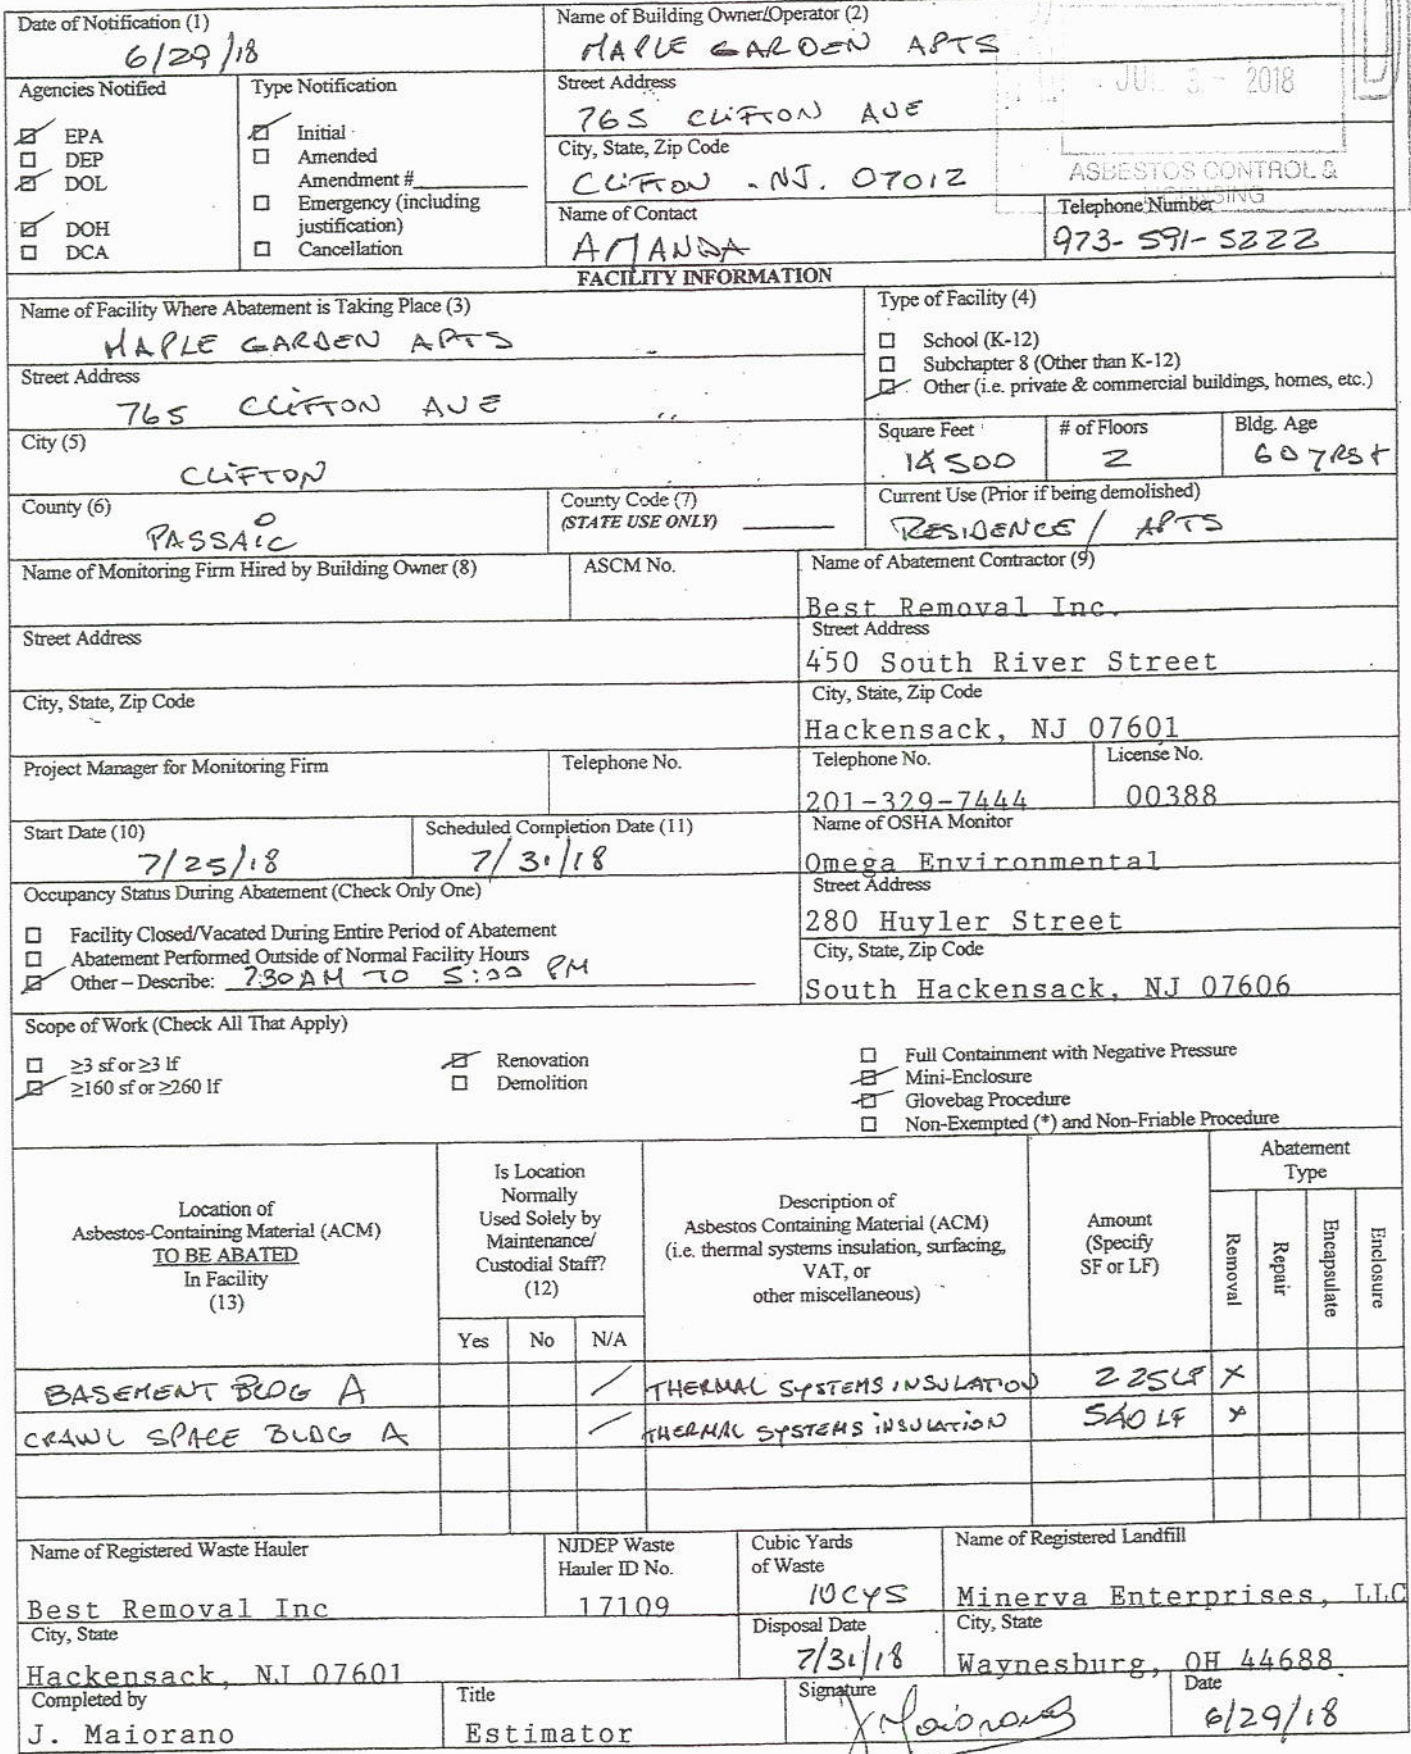 Date of Notification (1)
6/29/18
Name of Building Owner/Operator (2)
MAPLE GARDEN APTS
Agencies Notified
EPA
DEP
DOL
DOH
DCA
Type Notification
Initial
Amended
Amendment #
Emergency (including
justification)
Cancellation
Street Address
765 CLIFTON AVE
City, State, Zip Code
CLIFTON - NJ. 07012
Name of Contact
AMANDA
JUL 3 - 2018
ASBESTOS CONTROL &
LICENSING
Telephone Number
973-591-5222
FACILITY INFORMATION
Name of Facility Where Abatement is Taking Place (3)
MAPLE GARDEN APTS
Street Address
765 CLIFTON AVE
City (5)
CLIFTON
Type of Facility (4)
School (K-12)
Subchapter 8 (Other than K-12)
Other (i.e. private & commercial buildings, homes, etc.)
Square Feet
14500
# of Floors
2
Bldg. Age
60 YRS+
County (6)
PASSAIC
County Code (7)
(STATE USE ONLY)
Current Use (Prior if being demolished)
RESIDENCE / APTS
Name of Monitoring Firm Hired by Building Owner (8)
ASCM No.
Name of Abatement Contractor (9)
Best Removal Inc.
Street Address
Street Address
450 South River Street
City, State, Zip Code
City, State, Zip Code
Hackensack, NJ 07601
Project Manager for Monitoring Firm
Telephone No.
Telephone No.
201-329-7444
License No.
00388
Start Date (10)
7/25/18
Scheduled Completion Date (11)
7/31/18
Name of OSHA Monitor
Omega Environmental
Occupancy Status During Abatement (Check Only One)
Facility Closed/Vacated During Entire Period of Abatement
Abatement Performed Outside of Normal Facility Hours
Other – Describe: 7:30 AM TO 5:00 PM
Street Address
280 Huyler Street
City, State, Zip Code
South Hackensack, NJ 07606
Scope of Work (Check All That Apply)
≥3 sf or ≥3 lf
≥160 sf or ≥260 lf
Renovation
Demolition
Full Containment with Negative Pressure
Mini-Enclosure
Glovebag Procedure
Non-Exempted (*) and Non-Friable Procedure
Location of
Asbestos-Containing Material (ACM)
TO BE ABATED
In Facility
(13)
Is Location
Normally
Used Solely by
Maintenance/
Custodial Staff?
(12)
Yes No N/A
Description of
Asbestos Containing Material (ACM)
(i.e. thermal systems insulation, surfacing,
VAT, or
other miscellaneous)
Amount
(Specify
SF or LF)
Abatement
Type
Removal
Repair
Encapsulate
Enclosure
BASEMENT BLDG A / THERMAL SYSTEMS INSULATION 225 LF X
CRAWL SPACE BLDG A / THERMAL SYSTEMS INSULATION 540 LF X
Name of Registered Waste Hauler
Best Removal Inc
NJDEP Waste
Hauler ID No.
17109
Cubic Yards
of Waste
10 CYS
Name of Registered Landfill
Minerva Enterprises, LLC
City, State
Hackensack, NJ 07601
Disposal Date
7/31/18
City, State
Waynesburg, OH 44688
Completed by
J. Maiorano
Title
Estimator
Signature
J Maiorano
Date
6/29/18